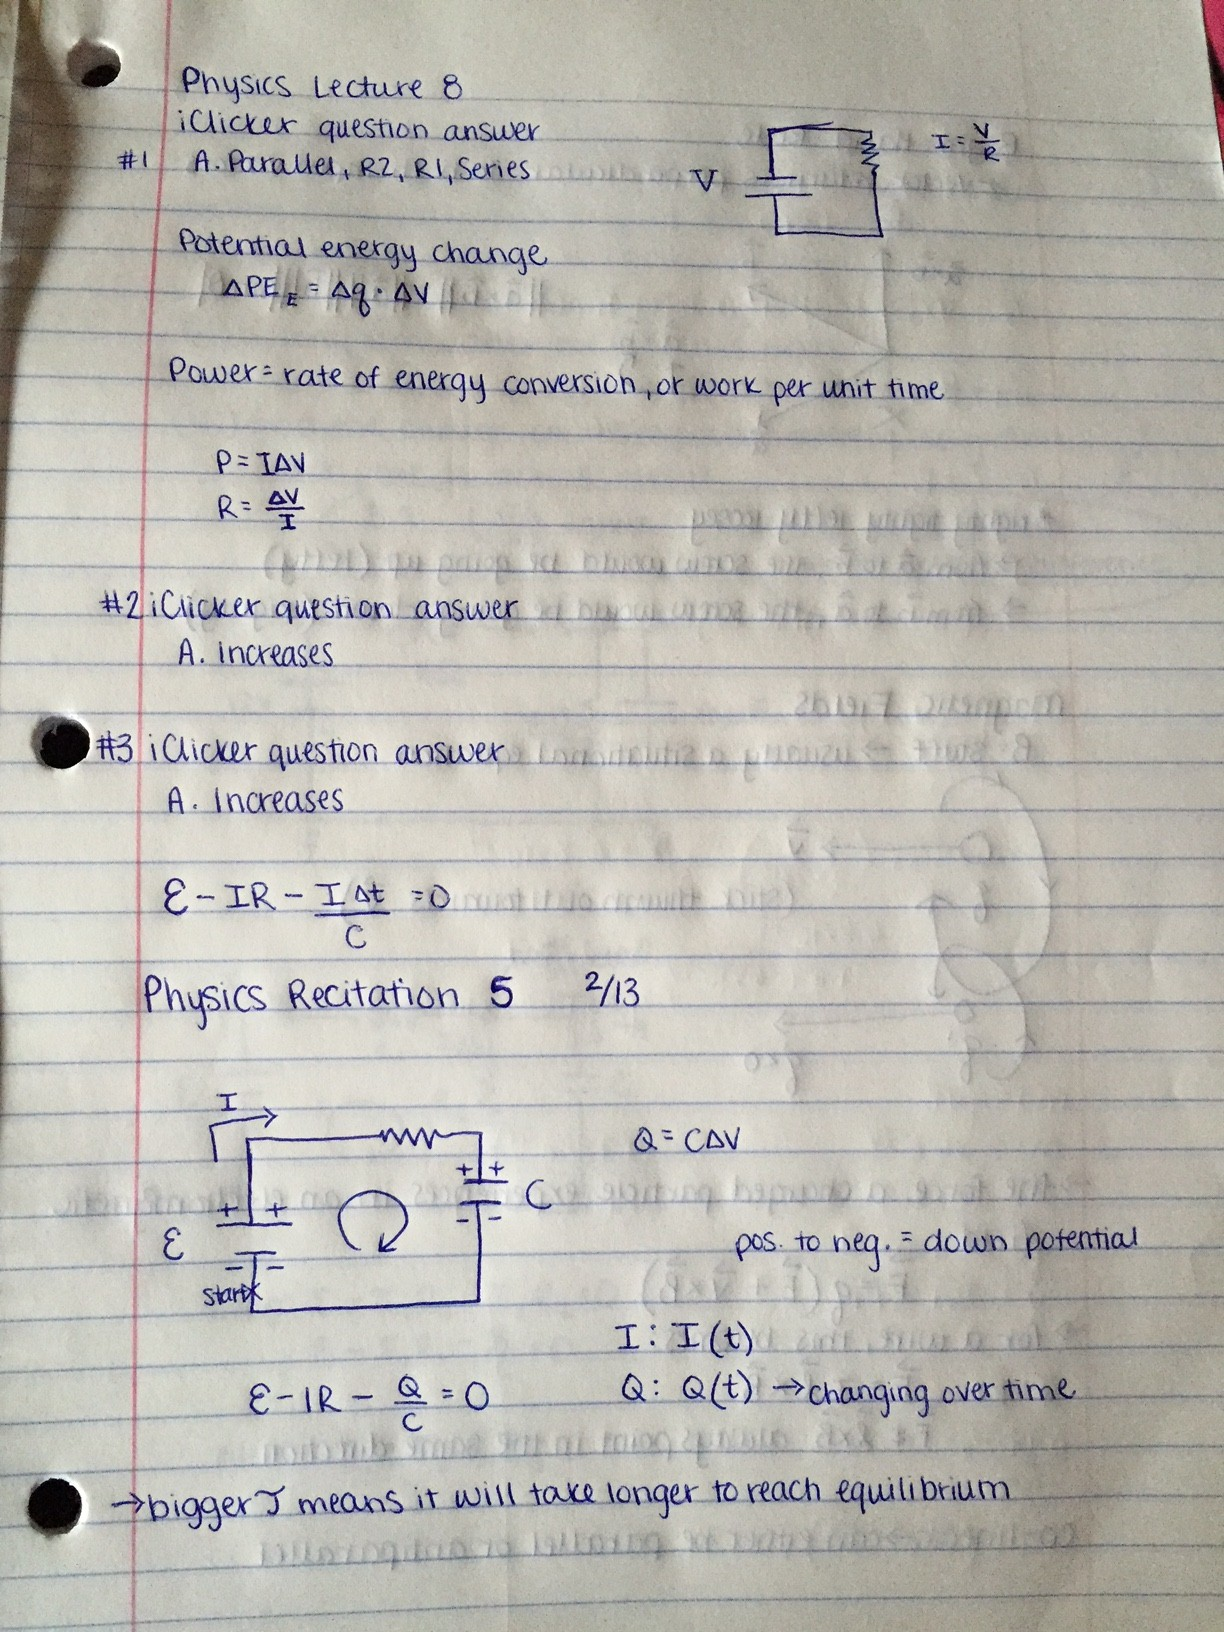 Physics Lecture 8
iClicker question answer
#1 A. Parallel, R2, R1, Series
V
I = V/R
Potential energy change
ΔPE_E = Δq · ΔV
Power = rate of energy conversion, or work per unit time
P = IΔV
R = ΔV/I
#2 iClicker question answer
A. increases
#3 iClicker question answer
A. Increases
Ɛ - IR - IΔt/C = 0
Physics Recitation 5 2/13
I
Q = CΔV
+ +
C
+ +
- -
Ɛ
pos. to neg. = down potential
- -
start x
I : I(t)
Ɛ - IR - Q/C = 0
Q : Q(t) → changing over time
→ bigger T means it will take longer to reach equilibrium